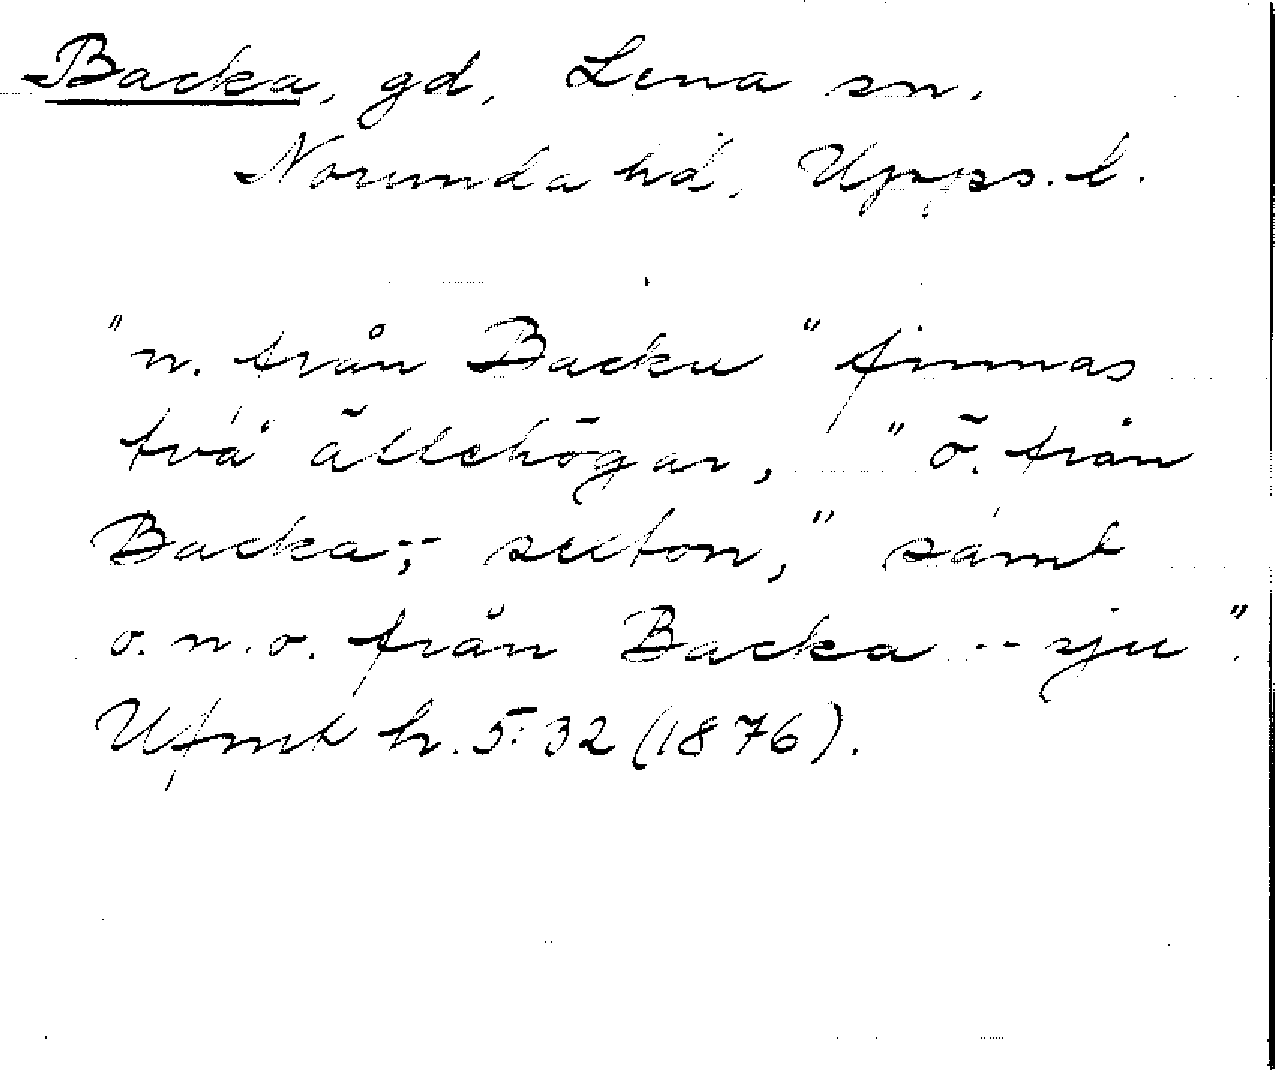 Backa, gd, Lena sn.
Norunda hd, Upps. l.
"n. från Backa" finnas
två ättehögar, "ö. från
Backa -; sexton," samt
o.n.o. från Backa -- sju".
Ufmt h. 5: 32 (1876).